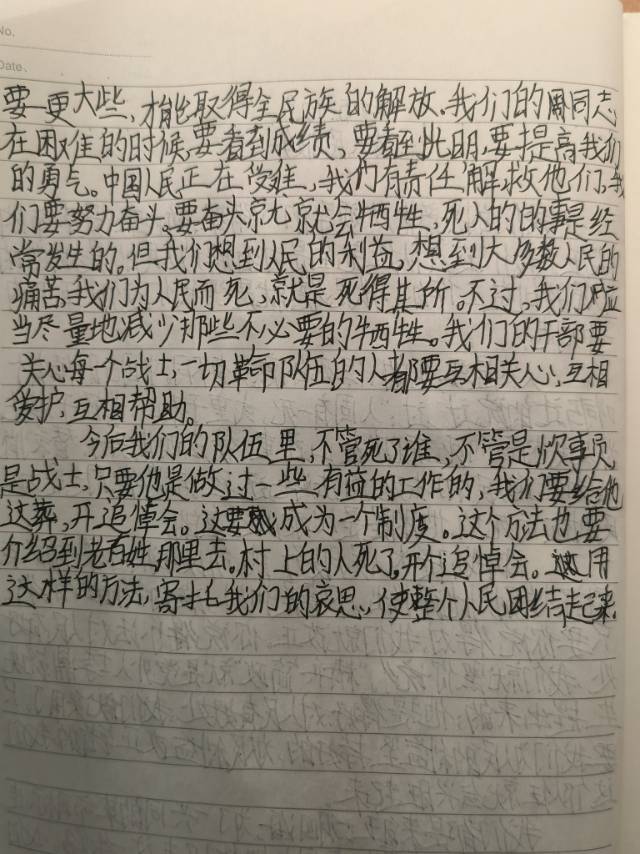 No.
Date.
要更大些,才能取得全民族的解放。我们的同志
在困难的时候,要看到成绩,要看到光明,要提高我们
的勇气。中国人民正在受难,我们有责任解救他们,我
们要努力奋斗。要奋斗就会牺牲,死人的的事是经
常发生的。但我们想到人民的利益,想到大多数人民的
痛苦,我们为人民而死,就是死得其所。不过,我们应
当尽量地减少那些不必要的牺牲。我们的干部要
关心每个战士,一切革命队伍的人都要互相关心,互相
爱护,互相帮助。
今后我们的队伍里,不管死了谁,不管是炊事员
是战士,只要他是做过一些有益的工作的,我们要给他
送葬,开追悼会。这要成为一个制度。这个方法也要
介绍到老百姓那里去。村上的人死了,开个追悼会。用
这样的方法,寄托我们的哀思,使整个人民团结起来